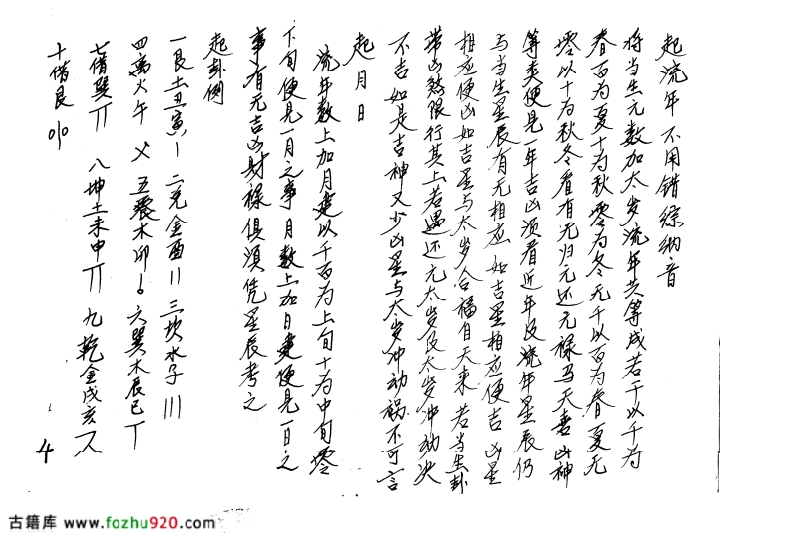 起流年不用错综纳音
将当生元数加太岁流年共等成若干以千为
春百为夏十为秋零为冬无千以百为春夏无
零以十为秋冬看有无归元还元禄马天喜凶神
等类便见一年吉凶须看近年及流年星辰仍
与当生星辰有无相应如吉星相应便吉凶星
相应便凶如吉星与太岁合福自天来若当生卦
带凶煞限行其上若遇还元太岁及太岁冲动决
不吉如是吉神又少凶星与太岁冲动祸不可言
起月日
流年数上加月建以千百为上旬十为中旬零
下旬便见一月之事月数上加日建便见一日之
事有无吉凶财禄俱须凭星辰考之
起卦例
一艮土丑寅〡 二兑金酉〢 三坎水子〣
四离火午〤 五震木卯〥 六巽木辰巳〦
七借巽〧 八坤土未申〧 九乾金戌亥〩
十借艮
4
古籍库 www.fozhu920.com